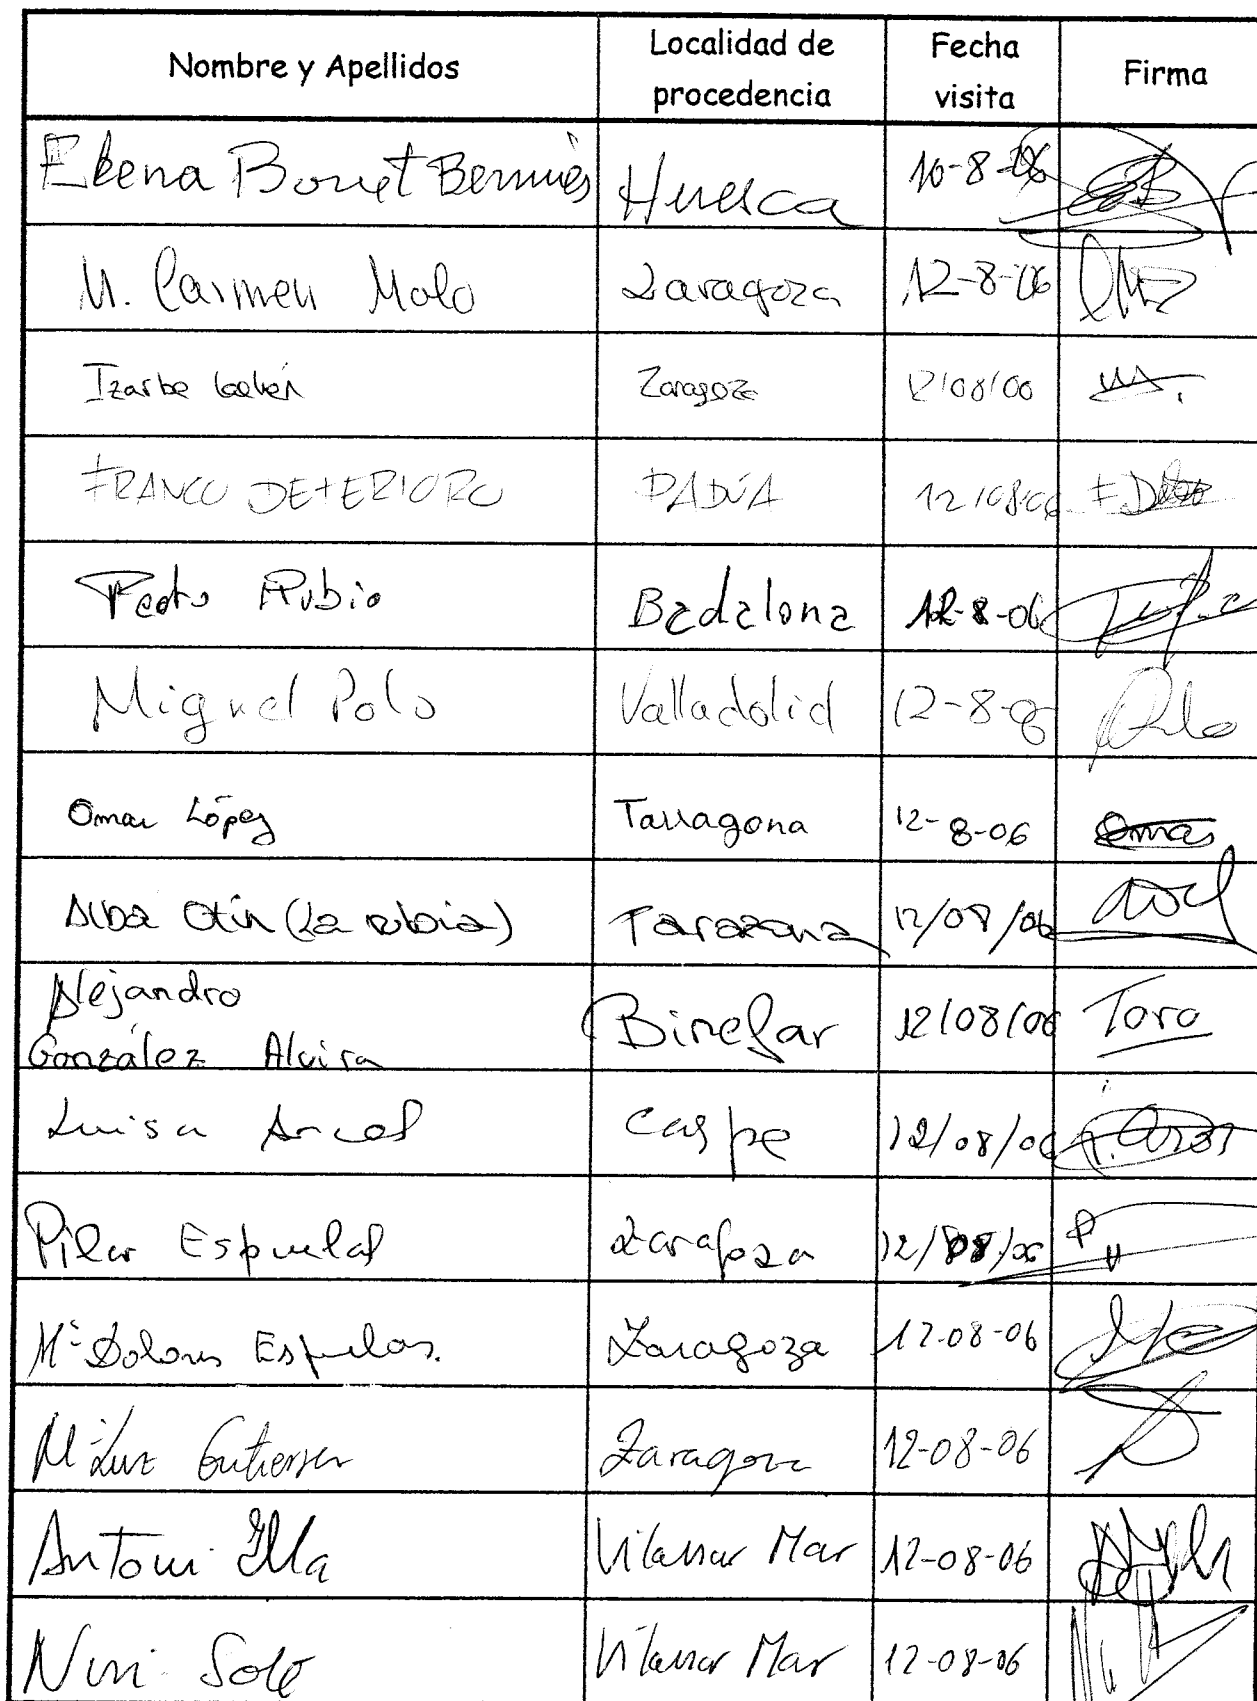 Nombre y Apellidos
Localidad de
procedencia
Fecha
visita
Firma
Elena Bonet Bermués Huesca 10-8-06
M. Carmen Molo Zaragoza 12-8-06
Izarbe Zaragoza
FRANCO DETERIORO PADÚA 12/08/06
Pedro Rubio Badalona 12-8-06
Miguel Polo Valladolid 12-8-06 Polo
Omar López Tarragona 12-8-06 Omar
Alba Otín (La rubia) Tarazona 12/08/06
Alejandro
González Alvira Binefar 12/08/06 Toro
Luisa Caspe 12/08/06
Pilar Espuelas Zaragoza 12/08/06
Mª Dolores Espuelas. Zaragoza 12-08-06
Mª Luz Gutierrez Zaragoza 12-08-06
Antoni Illa Vilassar Mar 12-08-06
Nuri Solé Vilassar Mar 12-08-06